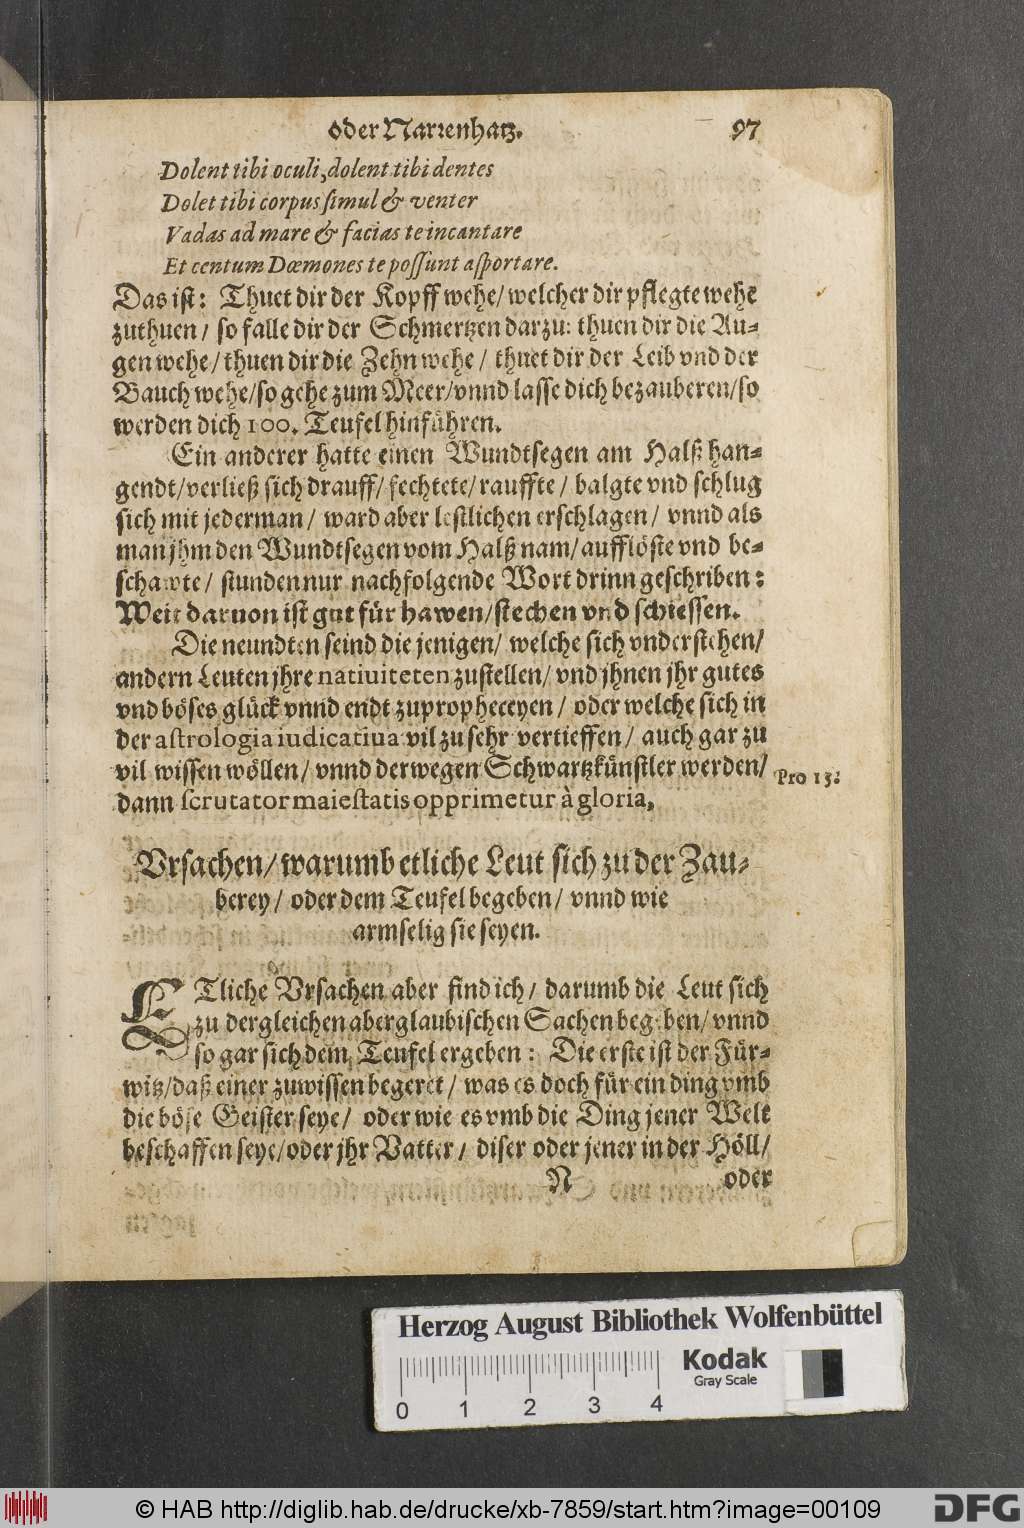 oder Narrenhatz. 97
Dolent tibi oculi, dolent tibi dentes
Dolet tibi corpus simul & venter
Vadas ad mare & facias te incantare
Et centum Dæmones te possunt asportare.
Das ist: Thuet dir der Kopff wehe/ welcher dir pflegte wehe
zuthuen/ so falle dir der Schmertzen darzu: thuen dir die Au-
gen wehe/ thuen dir die Zehn wehe/ thuet dir der Leib vnd der
Bauch wehe/ so gehe zum Meer/ vnnd lasse dich bezauberen/ so
werden dich 100. Teufel hinführen.
Ein anderer hatte einen Wundtsegen am Halß han-
gendt/ verließ sich drauff/ fechtete/ rauffte/ balgte vnd schlug
sich mit jederman/ ward aber lestlichen erschlagen/ vnnd als
man jhm den Wundtsegen vom Halß nam/ aufflöste vnd be-
schawte/ stunden nur nachfolgende Wort drinn geschriben:
Weit daruon ist gut für hawen/ stechen vnd schiessen.
Die neundten seind die jenigen/ welche sich vnderstehen/
andern Leuten jhre natiuiteten zustellen/ vnd jhnen jhr gutes
vnd böses glück vnnd endt zupropheceyen/ oder welche sich in
der astrologia iudicatiua vil zu sehr vertieffen/ auch gar zu
vil wissen wöllen/ vnnd derwegen Schwartzkünstler werden/ Pro 13:
dann scrutator maiestatis opprimetur à gloria.
Vrsachen/ warumb etliche Leut sich zu der Zau-
berey/ oder dem Teufel begeben/ vnnd wie
armselig sie seyen.
ETliche Vrsachen aber find ich/ darumb die Leut sich
zu dergleichen aberglaubischen Sachen begeben/ vnnd
so gar sich dem Teufel ergeben: Die erste ist der Für-
witz/ daß einer zuwissen begeret/ was es doch für ein ding vmb
die böse Geister seye/ oder wie es vmb die Ding jener Welt
beschaffen seye/ oder jhr Vatter/ diser oder jener in der Höll/
N oder
Herzog August Bibliothek Wolfenbüttel
Kodak
Gray Scale
0 1 2 3 4
© HAB http://diglib.hab.de/drucke/xb-7859/start.htm?image=00109
DFG